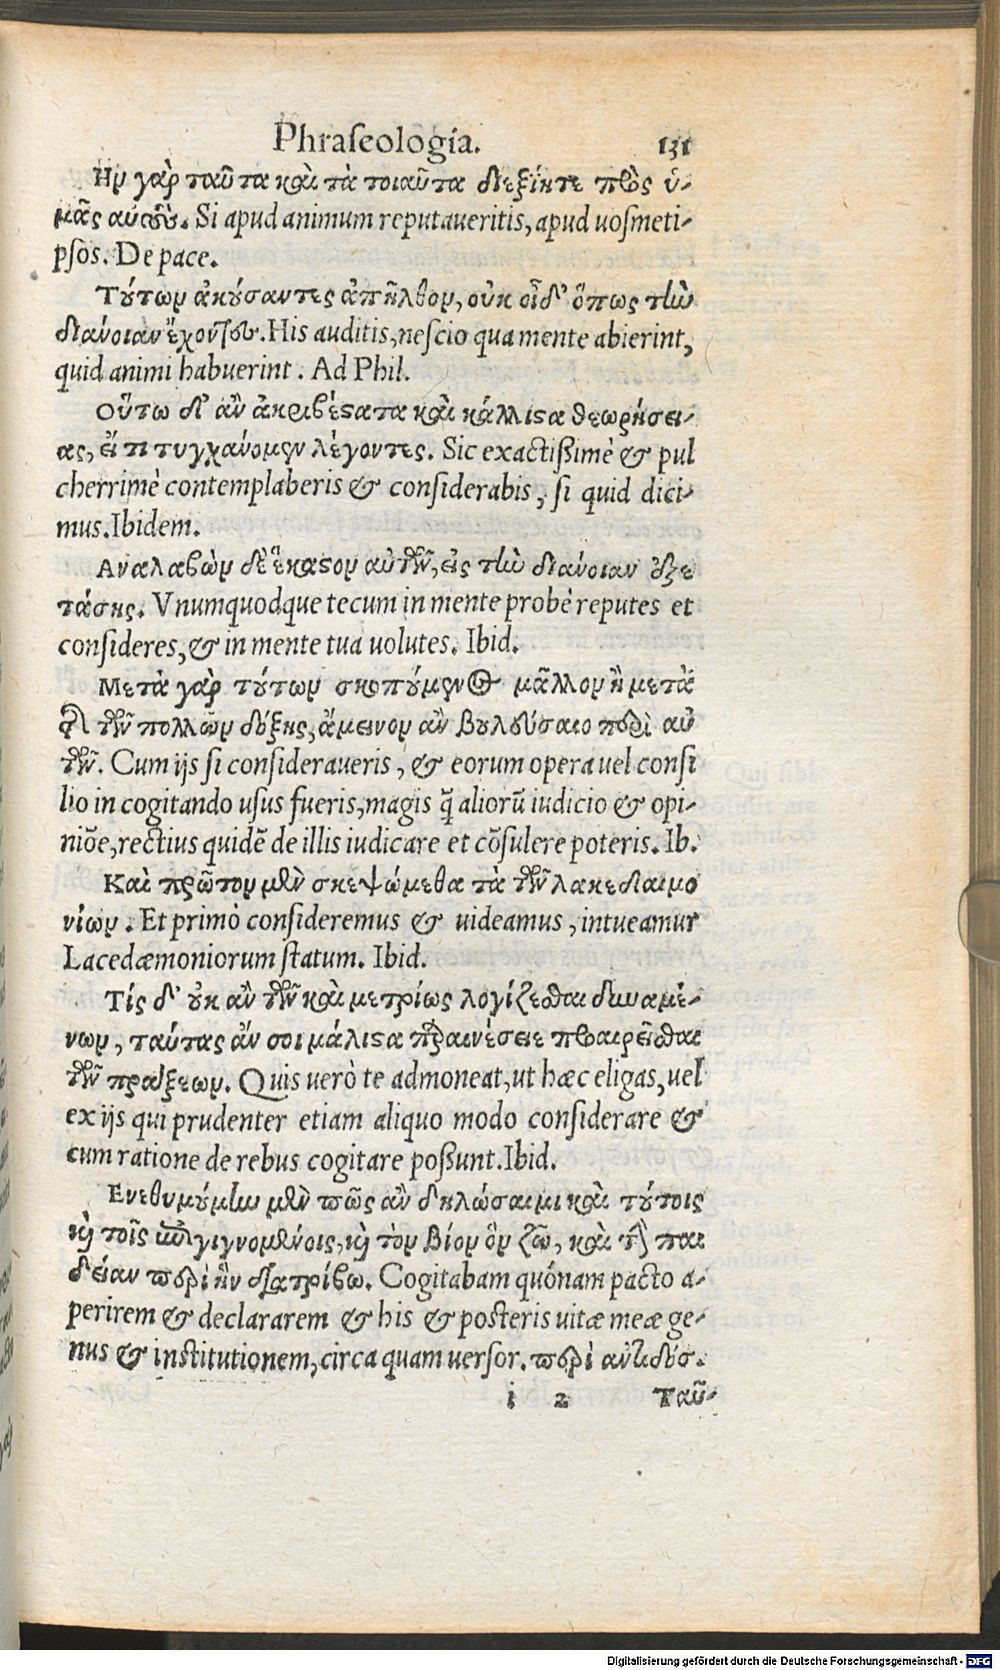 Phraſeologia. 131
Ην γὰρ ταῦτα καὶ τὰ τοιαῦτα διεξίητε πρὸς ὑ-
μᾶς αὐτοὺς. Si apud animum reputaueritis, apud uoſmeti-
pſos. De pace.
Τούτων ἀκούσαντες ἀπῆλθον, οὐκ οἶδ' ὅπως τὴν
διάνοιαν ἔχοντες. His auditis, neſcio qua mente abierint,
quid animi habuerint. Ad Phil.
Οὕτω δ' ἂν ἀκριβέςατα καὶ κάλλιςα θεωρήσει-
ας, εἴ τι τυγχάνομεν λέγοντες. Sic exactißimè & pul
cherrimè contemplaberis & conſiderabis, ſi quid dici-
mus. Ibidem.
Αναλαβὼν δὲ ἕκαςον αὐτῶν, εἰς τὴν διάνοιαν ἐξε
τάσης. Vnumquodque tecum in mente probè reputes et
conſideres, & in mente tua uolutes. Ibid.
Μετὰ γὰρ τούτων σκοπούμενος μᾶλλον ἢ μετὰ
τῆς τῶν πολλῶν δόξης, ἄμεινον ἂν βουλεύσαιο περὶ αὐ
τῶν. Cum ijs ſi conſideraueris, & eorum opera uel conſi
lio in cogitando uſus fueris, magis q̃ aliorũ iudicio & opi-
niõe, rectius quidẽ de illis iudicare et cõſulere poteris. Ib.
Καὶ πρῶτον μὲν σκεψώμεθα τὰ τῶν λακεδαιμο
νίων. Et primò conſideremus & uideamus, intueamur
Lacedæmoniorum ſtatum. Ibid.
Τίς δ' οὐκ ἂν τῶν καὶ μετρίως λογίζεσθαι δυναμέ-
νων, ταύτας ἄν σοι μάλιςα παραινέσειε προαιρεῖσθαι
τῶν πράξεων. Quis uerò te admoneat, ut hæc eligas, uel
ex ijs qui prudenter etiam aliquo modo conſiderare &
cum ratione de rebus cogitare poßunt. Ibid.
Ενεθυμούμην μὲν πῶς ἂν δηλώσαιμι καὶ τούτοις
καὶ τοῖς ἐπιγιγνομένοις, καὶ τὸν βίον ὃν ζῶ, καὶ τὴν παι
δείαν περὶ ἣν διατρίβω. Cogitabam quónam pacto a-
perirem & declararem & his & poſteris uitæ meæ ge-
nus & inſtitutionem, circa quam uerſor. περὶ ἀντιδόσ.
i 2 Ταῦ-
Digitalisierung gefördert durch die Deutsche Forschungsgemeinschaft - DFG